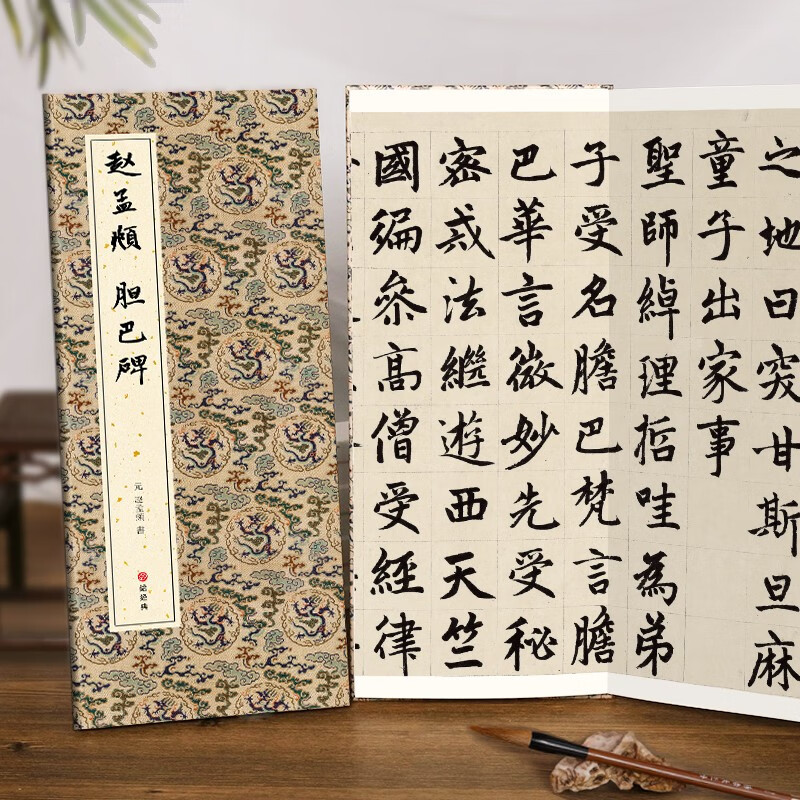 赵孟頫 胆巴碑
元 趙孟頫 書
之地曰突甘斯旦麻
童子出家事
聖師綽理哲哇為弟
子受名膽巴梵言膽
巴華言微妙先受秘
密戒法繼遊西天竺
國徧叅高僧受經律